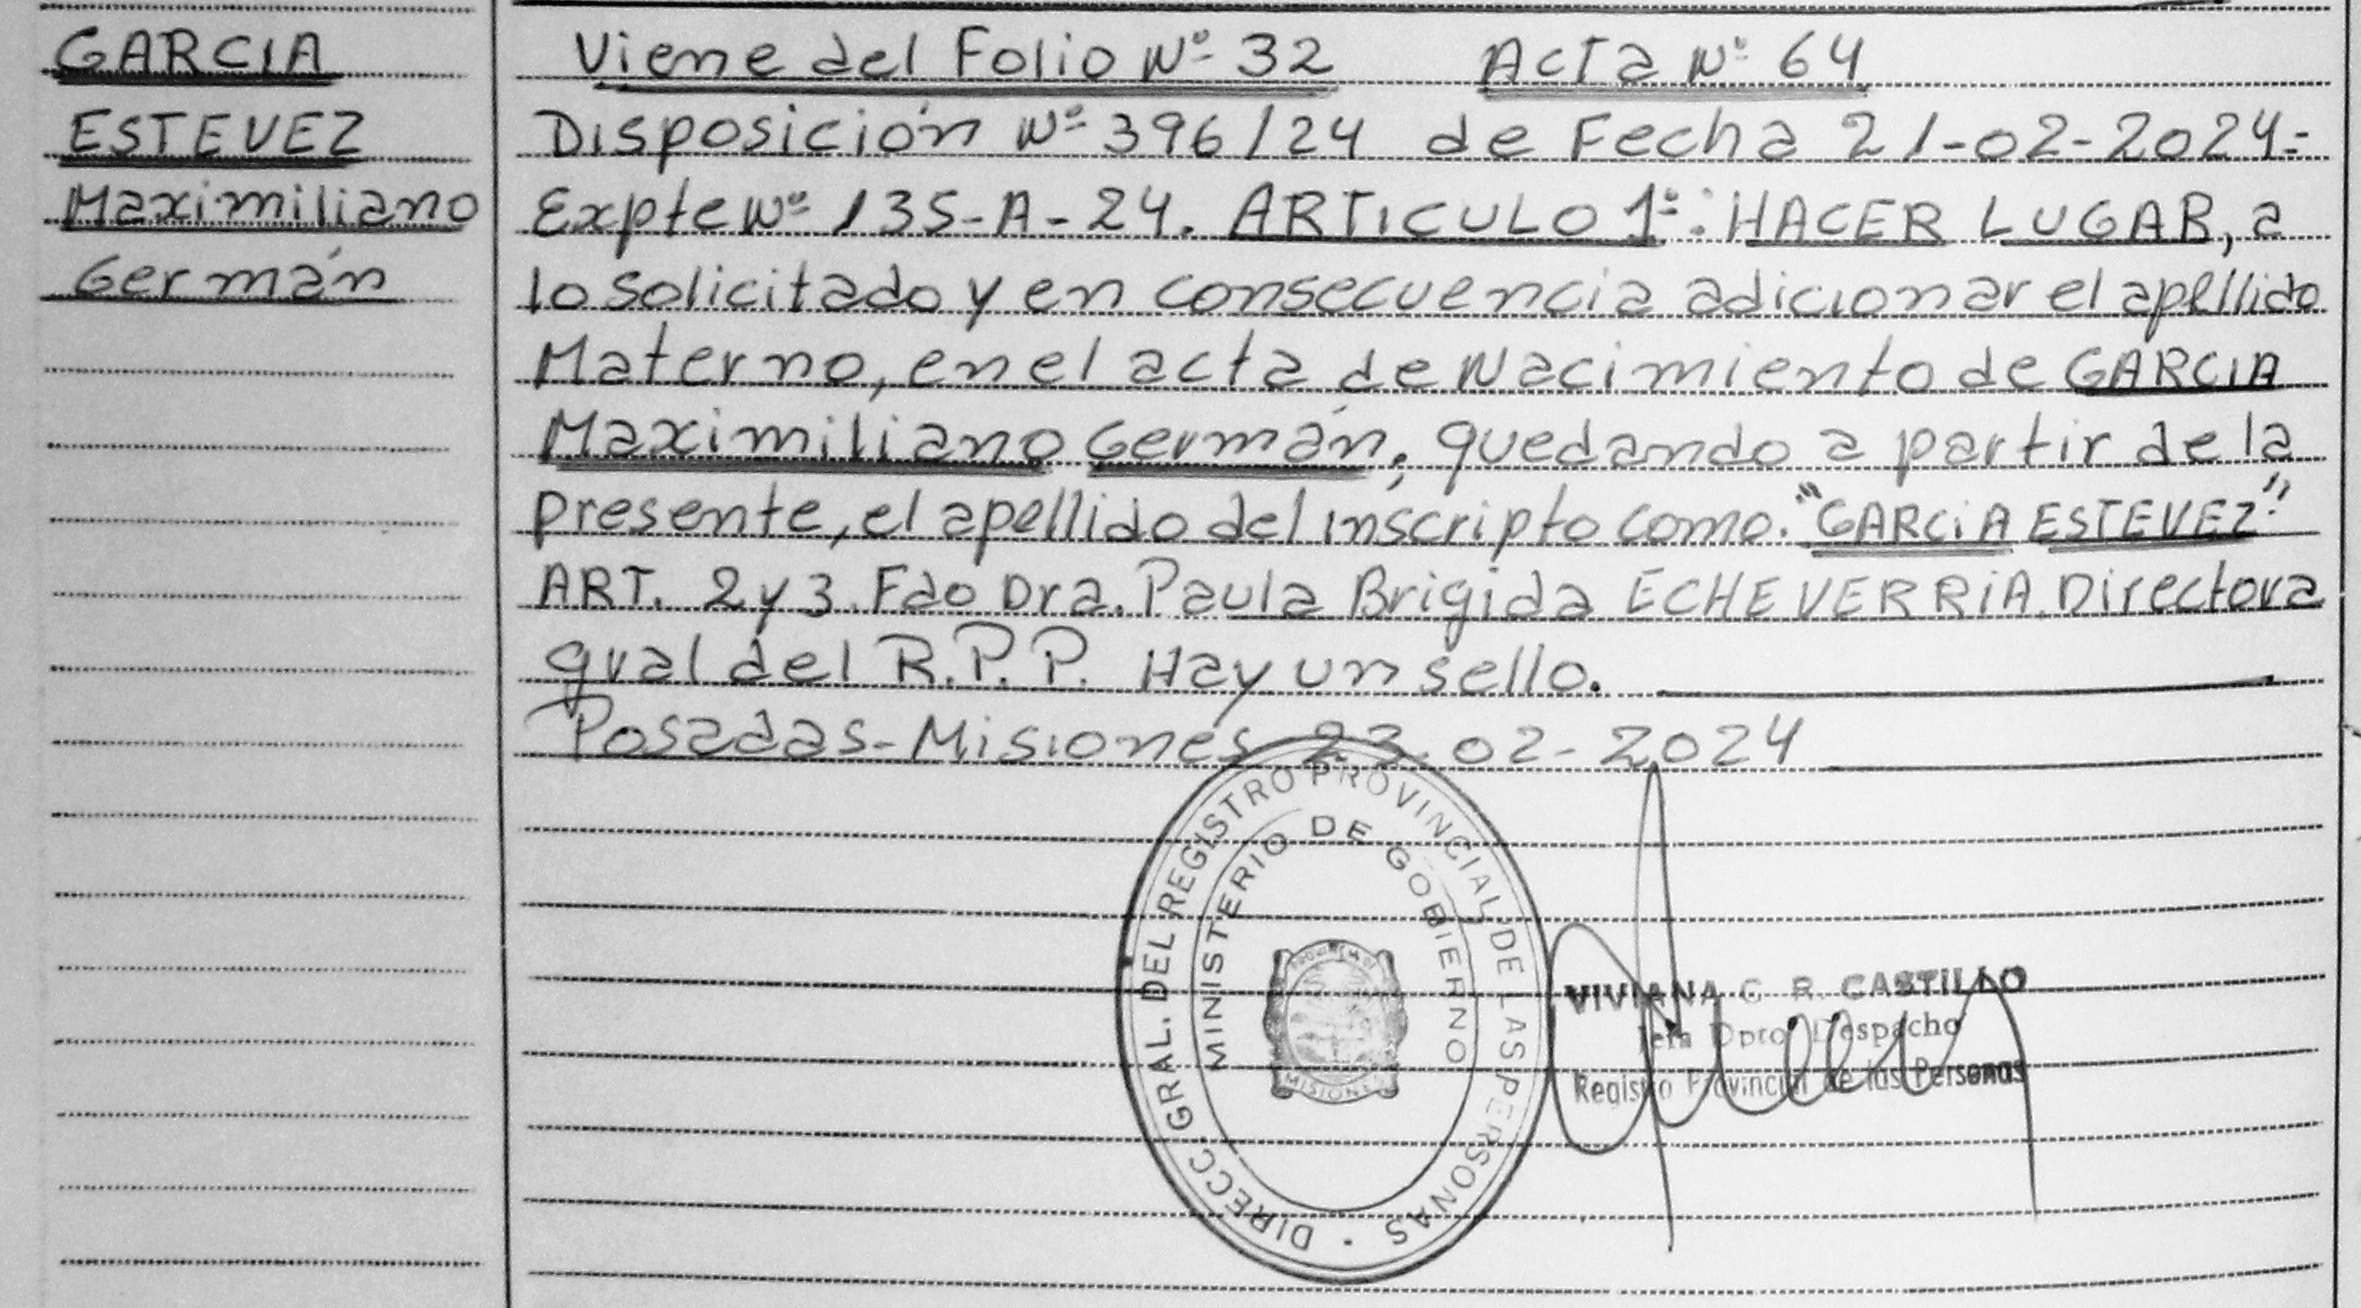 GARCIA
ESTEVEZ
Maximiliano
Germán
Viene del Folio Nº 32 Acta Nº 64
Disposición Nº 396/24 de Fecha 21-02-2024-
Expte Nº 135-A-24. ARTICULO 1º: HACER LUGAR, a
lo solicitado y en consecuencia adicionar el apellido
Materno, en el acta de Nacimiento de GARCIA
Maximiliano Germán, quedando a partir de la
presente, el apellido del inscripto como. "GARCIA ESTEVEZ"
ART. 2 y 3. Fdo Dra. Paula Brigida ECHEVERRIA. Directora
gral del R.P.P. Hay un sello.
Posadas-Misiones 23-02-2024
DIRECC. GRAL. DEL REGISTRO PROVINCIAL DE LAS PERSONAS
MINISTERIO DE GOBIERNO
MISIONES
VIVIANA C. R. CASTILLO
Dpto Despacho
Registro Provincial de las Personas